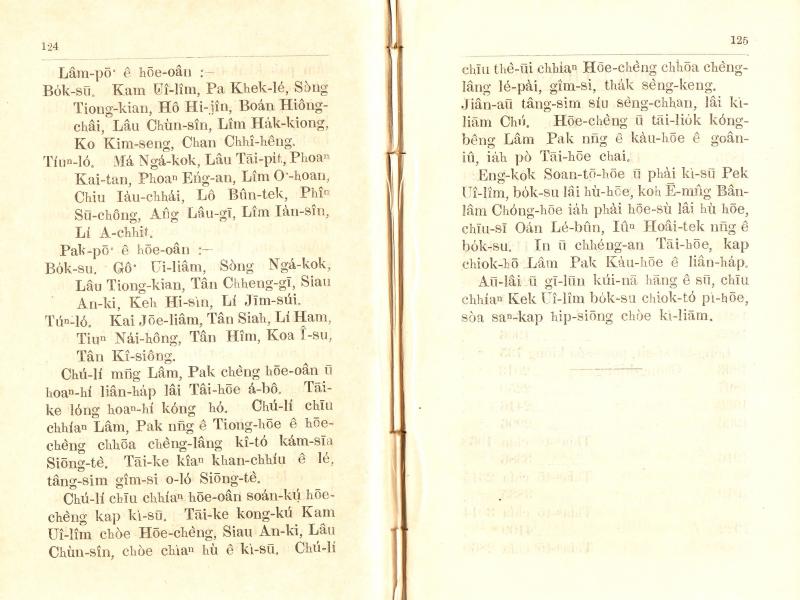 124
Lâm-pō͘ ê hōe-oân :—
Bo̍k-sū. Kam Uî-lîm, Pa Khek-lé, Sòng
Tiong-kian, Hô Hi-jîn, Boán Hiông-
châi, Lâu Chùn-sîn, Lîm Ha̍k-kiong,
Ko Kim-seng, Chan Chhî-hêng.
Tíuⁿ-ló. Má Ngá-kok, Lâu Tāi-pit, Phoaⁿ
Kai-tan, Phoaⁿ Eng-an, Lîm O͘-hoan,
Chiu Iàu-chhái, Lô Bûn-tek, Phîⁿ
Sū-chông, Âng Lâu-gī, Lîm Iàn-sîn,
Lí A-chhit.
Pak-pō͘ ê hōe-oân :—
Bo̍k-su. Gô͘ Ui-liâm, Sòng Ngá-kok,
Lâu Tiong-kian, Tân Chheng-gī, Siau
An-ki, Keh Hi-sìn, Lí Jīm-súi.
Túⁿ-ló. Kai Jōe-liâm, Tân Siah, Lí Ham,
Tiuⁿ Nái-hông, Tân Hîm, Koa Î-su,
Tân Kî-siông.
Chú-lí mn̄g Lâm, Pak chêng hōe-oân ū
hoaⁿ-hí liân-ha̍p lâi Tâi-hōe á-bô. Tāi-
ke lóng hoaⁿ-hí kóng hó. Chú-lí chīu
chhíaⁿ Lâm, Pak nn̄g ê Tiong-hōe ê hōe-
chèng chhōa chèng-lâng kî-tó kám-sīa
Siōng-tè. Tāi-ke kîaⁿ khan-chhíu ê lé,
tâng-sim gîm-si o-ló Siōng-tè.
Chú-lí chīu chhíaⁿ hōe-oân soán-kú hōe-
chèng kap kì-sū. Tāi-ke kong-kú Kam
Uî-lîm chòe Hōe-chèng, Siau An-ki, Lâu
Chùn-sîn, chòe chìaⁿ hù ê kì-sū. Chú-lí
125
chīu thè-ūi chhiaⁿ Hōe-chèng chhōa chèng-
lâng lé-pài, gîm-si, tha̍k sèng-keng.
Jiân-aū tâng-sim síu sèng-chhan, lâi kì-
liām Chú. Hōe-chèng ū tāi-lio̍k kóng-
bêng Lâm Pak nn̄g ê kàu-hōe ê goân-
iû, ia̍h pò Tāi-hōe chai.
Eng-kok Soan-tō-hōe ū phài kì-sū Pek
Uî-lîm, bo̍k-su lâi hù-hōe, koh Ē-mn̂g Bân-
lâm Chóng-hōe ia̍h phài hōe-sù lâi hù hōe,
chīu-sī Oán Lé-bûn, Iûⁿ Hoâi-tek nn̄g ê
bo̍k-su. In ū chhéng-an Tāi-hōe, kap
chiok-hō Lâm Pak Kàu-hōe ê liân-ha̍p.
Aū-lâi ū gī-lūn kúi-nā hāng ê sū, chīu
chhíaⁿ Kek Uî-lîm bo̍k-su chiok-tó pì-hōe,
sòa saⁿ-kap hip-siōng chòe kì-liām.